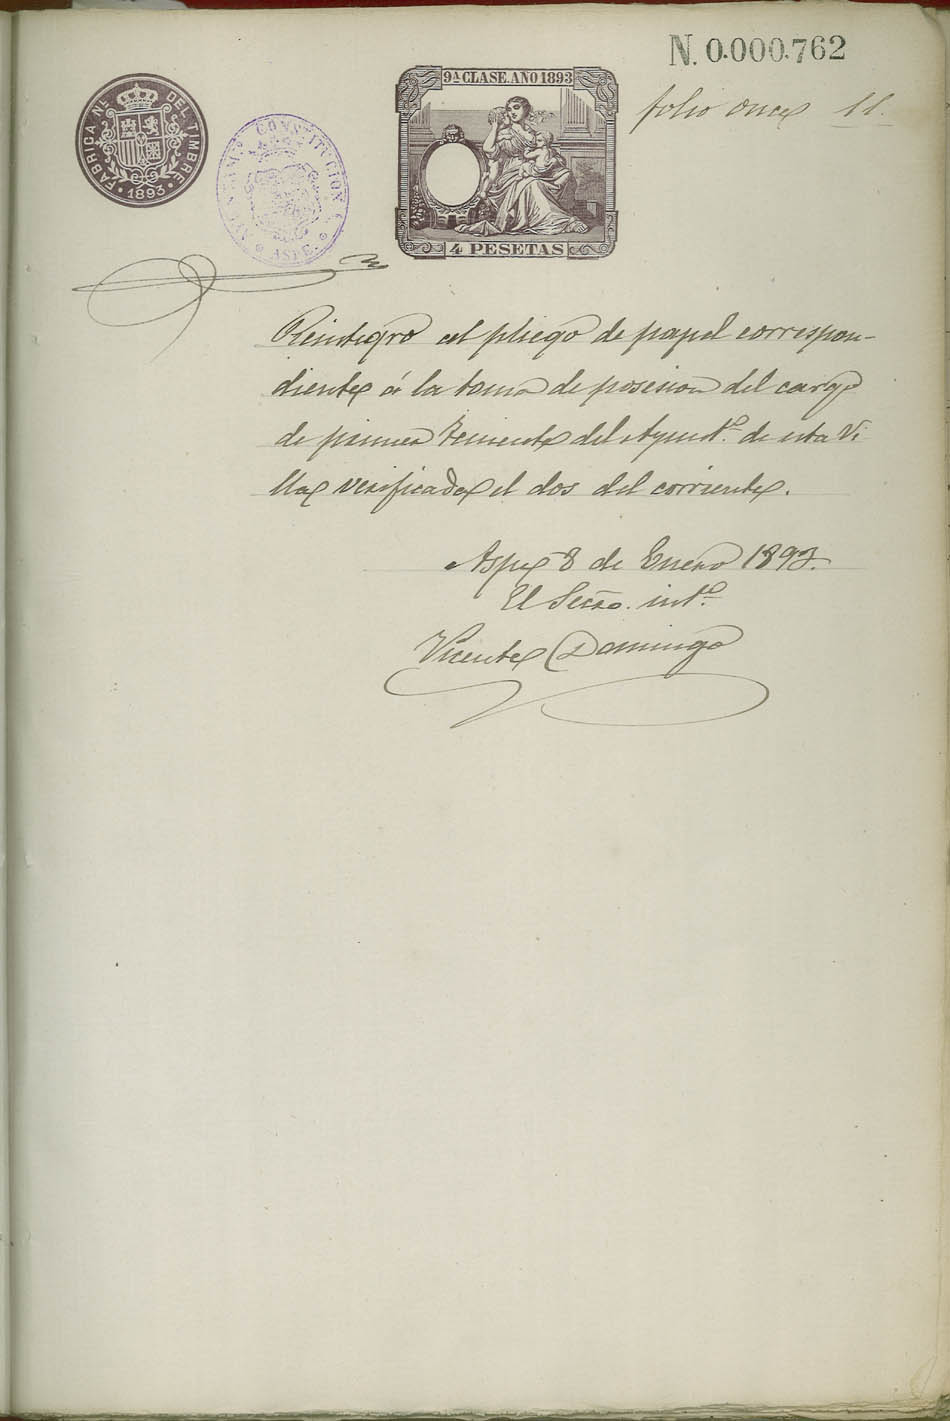 N. 0.000.762
FABRICA NL. DEL TIMBRE
1893
AYUNTAMTO CONSTITUCIONAL
ASPE.
9A CLASE. AÑO 1893
4 PESETAS
folio once 11.
Reintegro al pliego de papel correspon-
diente á la toma de posesion del cargo
de primer Teniente del Ayuntº. de esta Vi
lla, verificada el dos del corriente.
Aspe 8 de Enero 1893.
El Secrio. intº.
Vicente Domingo